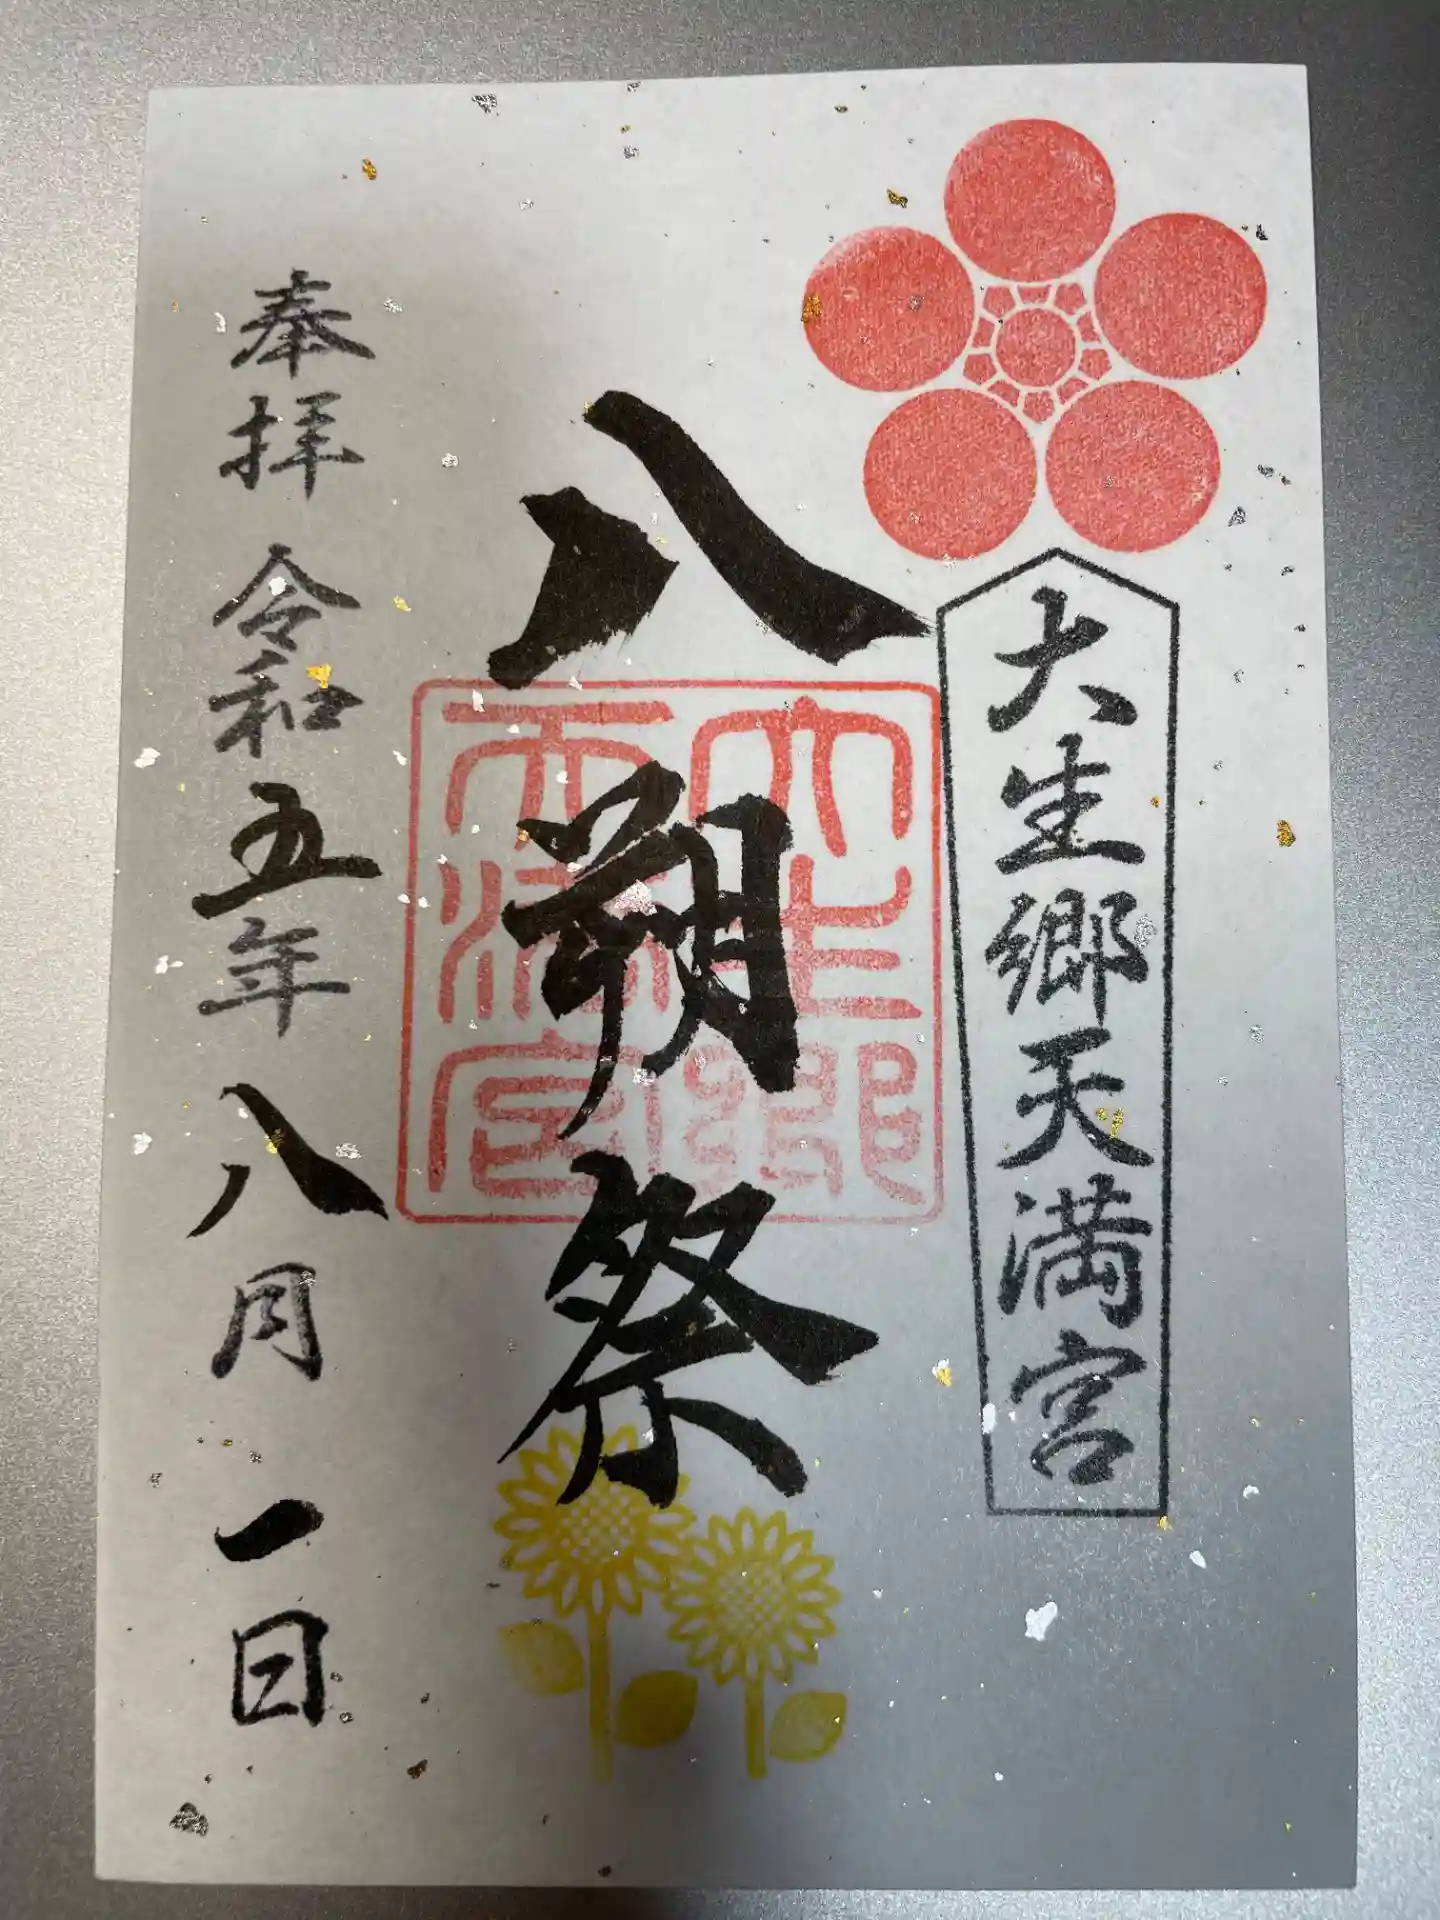 大生郷天満宮
八朔祭
大生郷
天満宮
奉拝 令和五年 八月 一日